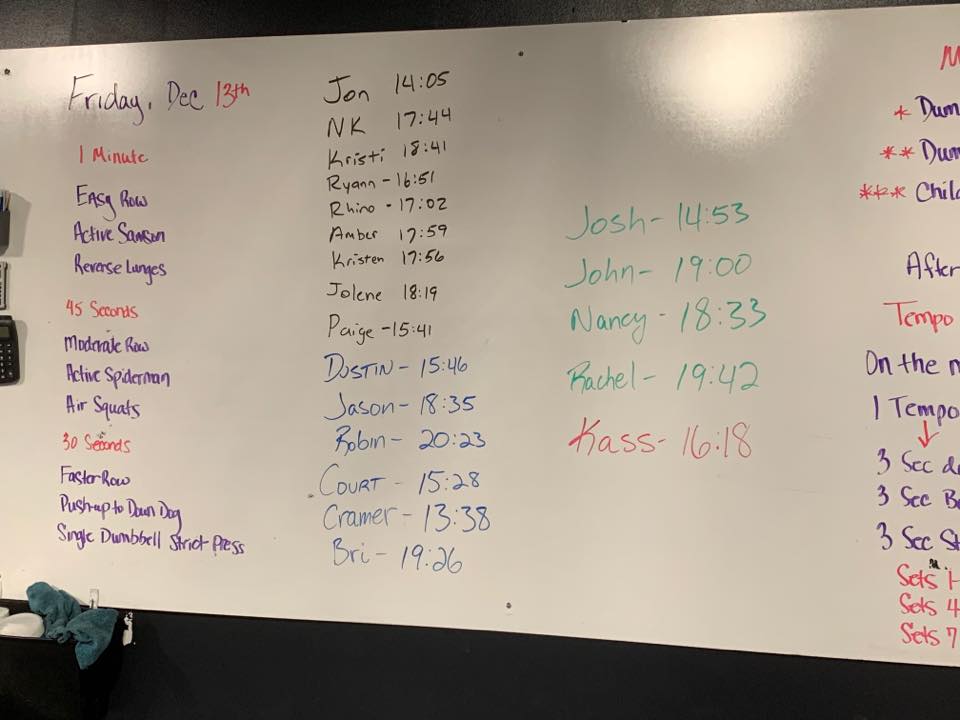 Friday, Dec 13th
1 Minute
Easy Row
Active Samson
Reverse Lunges
45 Seconds
Moderate Row
Active Spiderman
Air Squats
30 Seconds
Faster Row
Push-up to Down Dog
Single Dumbbell Strict Press
Jon 14:05
NK 17:44
Kristi 18:41
Ryann - 16:51
Rhino - 17:02
Amber 17:59
Kristen 17:56
Jolene 18:19
Paige - 15:41
Dustin - 15:46
Jason - 18:35
Robin - 20:23
Court - 15:28
Cramer - 13:38
Bri - 19:26
Josh - 14:53
John - 19:00
Nancy - 18:33
Rachel - 19:42
Kass - 16:18
M
* Dum
** Dum
*** Chil
After
Tempo
On the m
1 Tempo
↓
3 Sec d
3 Sec B
3 Sec St
Sets 1-
Sets 4
Sets 7